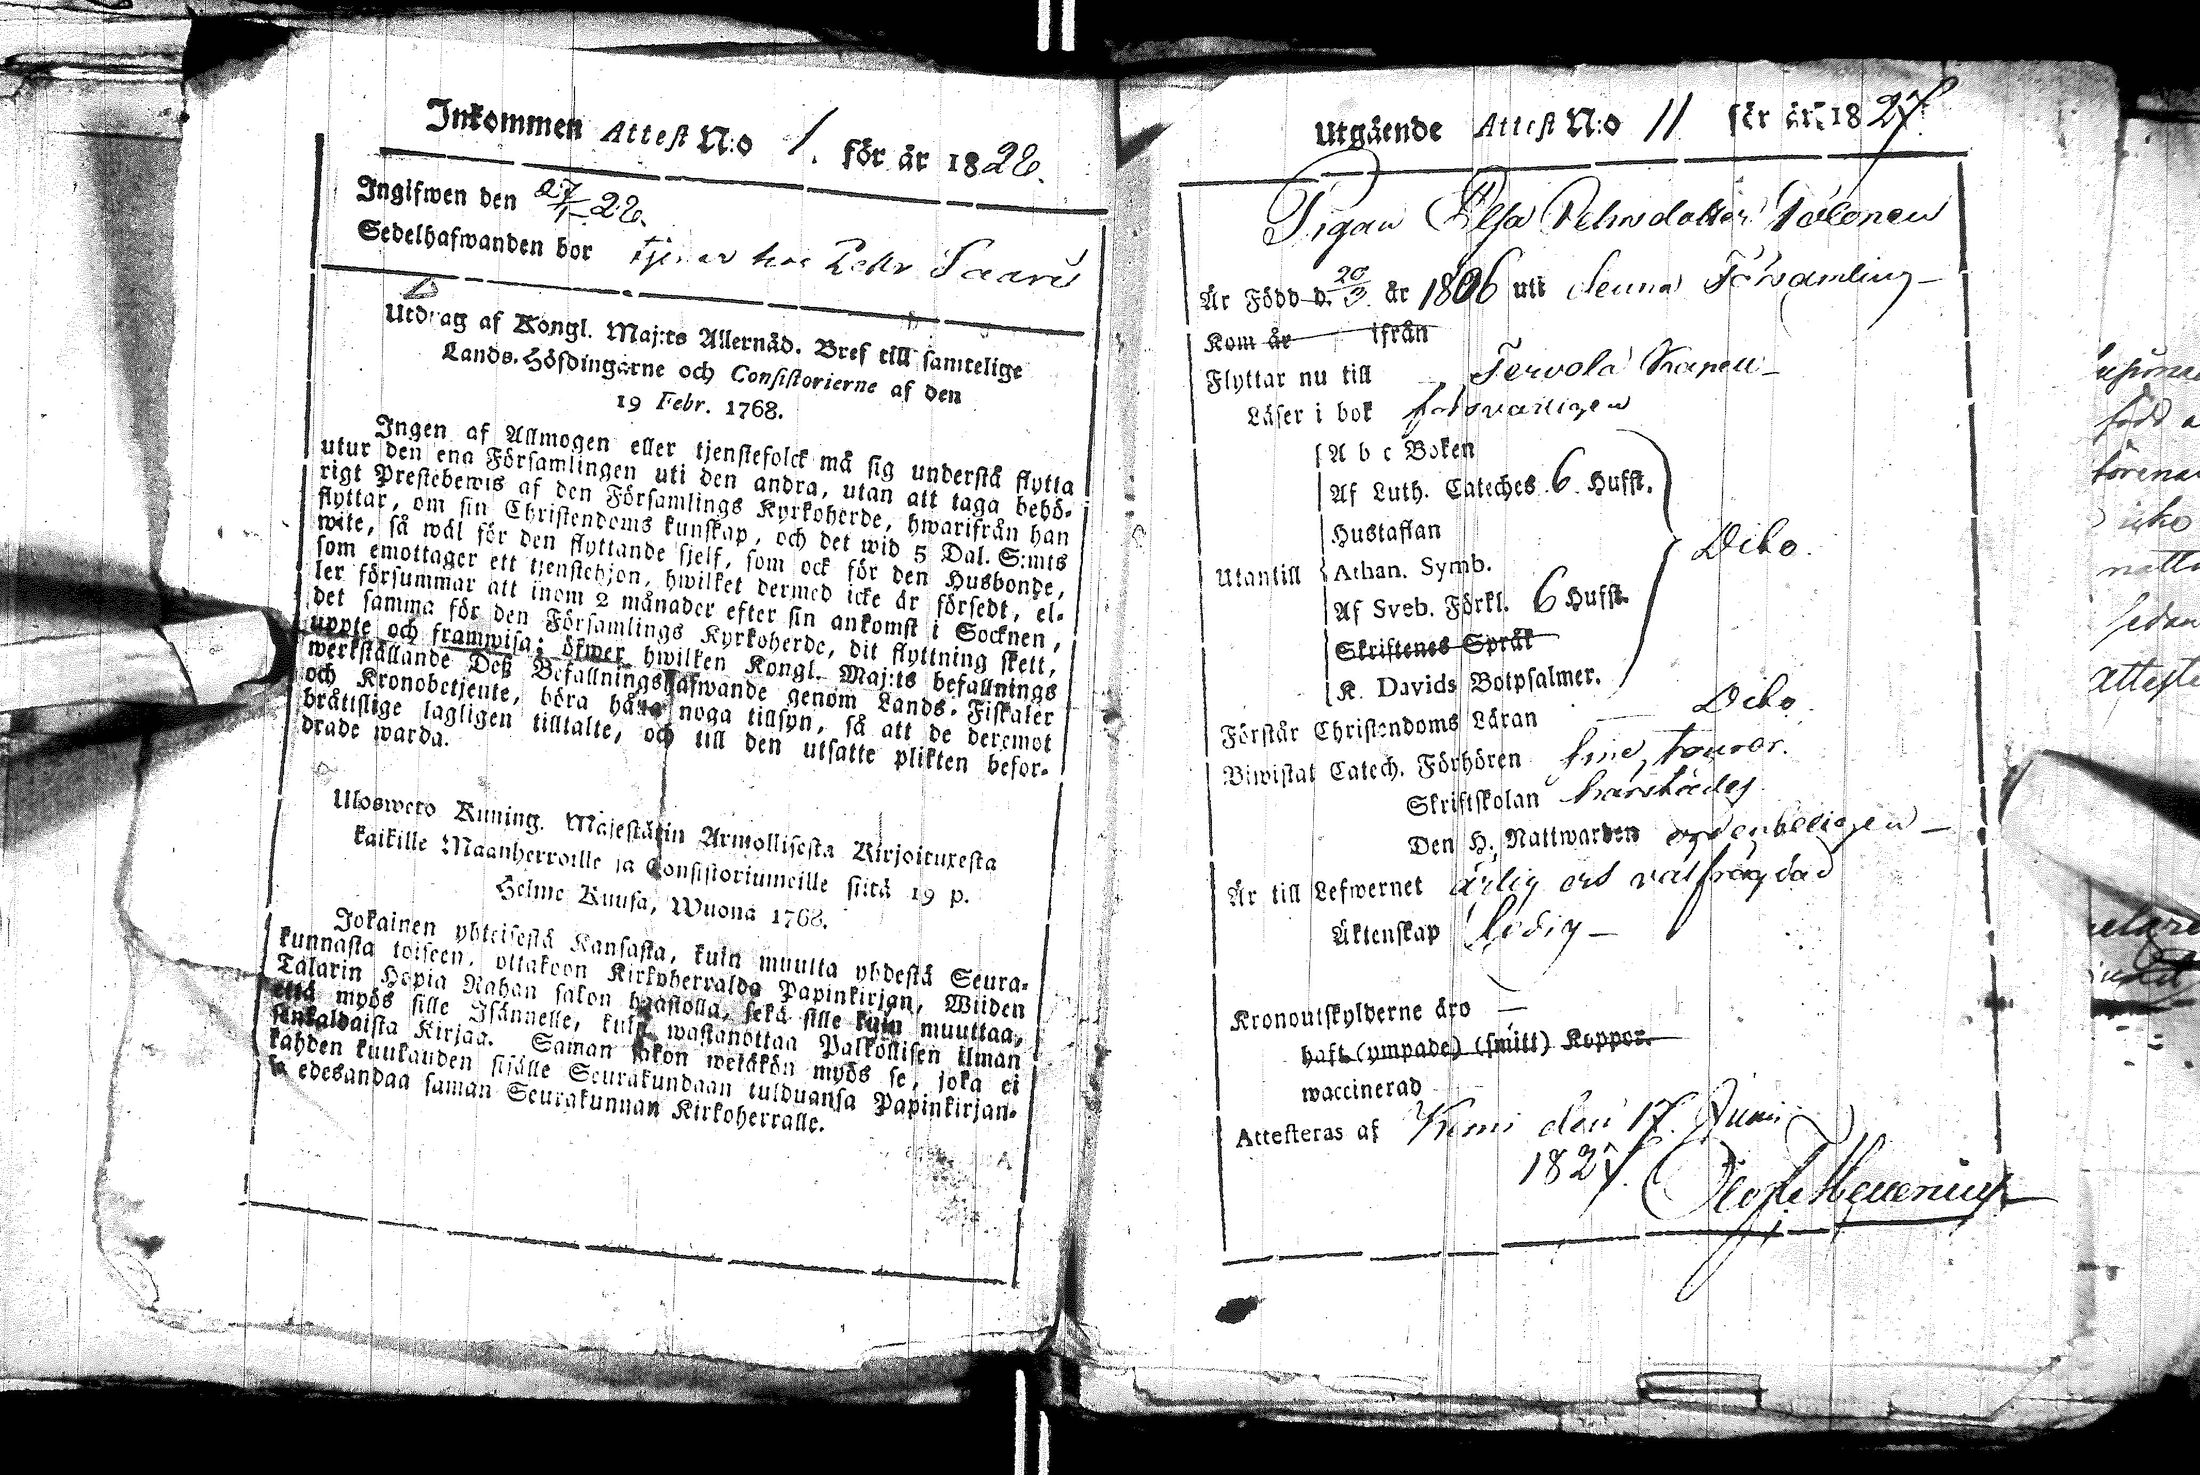 Inkommen Attest N:o 1. för år 1828.
Ingifwen den 27/1 28.
Sedelhafwanden bor tjenar hos Pehr Saari
Utdrag af Kongl. Maj:ts Allernåd. Bref till samtelige
Lands-Höfdingarne och Consistorierne af den
19 Febr. 1768.
Ingen af Allmogen eller tjenstefolck må sig understå flytta
utur den ena Församlingen uti den andra, utan att taga behö-
rigt Prestebewis af den Församlings Kyrkoherde, hwarifrån han
flyttar, om sin Christendoms kunskap, och det wid 5 Dal. S:mts
wite, så wäl för den flyttande sjelf, som ock för den Husbonde,
som emottager ett tjenstehjon, hwilket dermed icke är försedt, el-
ler försummar att inom 2 månader efter sin ankomst i Socknen,
det samma för den Församlings Kyrkoherde, dit flyttning skett,
uppte och framwisa; öfwer hwilken Kongl. Maj:ts befallnings
werkställande Deß Befallningshafwande genom Lands-Fiskaler
och Kronobetjente, böra hafwa noga tillsyn, så att de deremot
bråttslige lagligen tilltalte, och till den utsatte plikten befor-
drade warda.
Ulosweto Kuning. Majestätin Armollisesta Kirjoituxesta
kaikille Maanherroille ja Consistoriumeille siitä 19 p.
Helme Kuusa, Wuona 1768.
Jokainen yhteisestä Kansasta, kuin muutta yhdestä Seura-
kunnasta toiseen, ottakoon Kirkoherralda Papinkirjan, Wiiden
Talarin Hopia Rahan sakon haastolla, sekä sille kuin muuttaa,
että myös sille Isännelle, kuin wastanottaa Palkollisen ilman
senkaldaista Kirjaa. Saman sakon wetäkön myös se, joka ei
kahden kuukauden sisälle Seurakundaan tulduansa Papinkirjan-
sa edesandaa saman Seurakunnan Kirkoherralle.
Utgående Attest N:o 11 för år 1827.
Pigan Elsa Pehrsdotter Tolonen
Är Född d. 20/3 år 1806 uti denna Församling
Kom år ifrån
Flyttar nu till Tervola Kapell
Läser i bok försvarligen
A b c Boken
Af Luth. Cateches. 6. Hufst.
Hustaflan
Utantill Athan. Symb. Dito.
Af Sveb. Förkl. 6 Hufst.
Skriftenes Språk
K. Davids Botpsalmer.
Förstår Christendoms Läran Dito.
Biwistat Catech. Förhören sine tourer.
Skriftskolan härstädes
Den H. Nattwarden ordenteligen
Är till Lefwernet ärlig och välfräjdad
Äktenskap Ledig
Kronoutskylderne äro
haft (ympade) (smitt) Koppor.
waccinerad
Attesteras af Kemi den 17. Juni
1827.